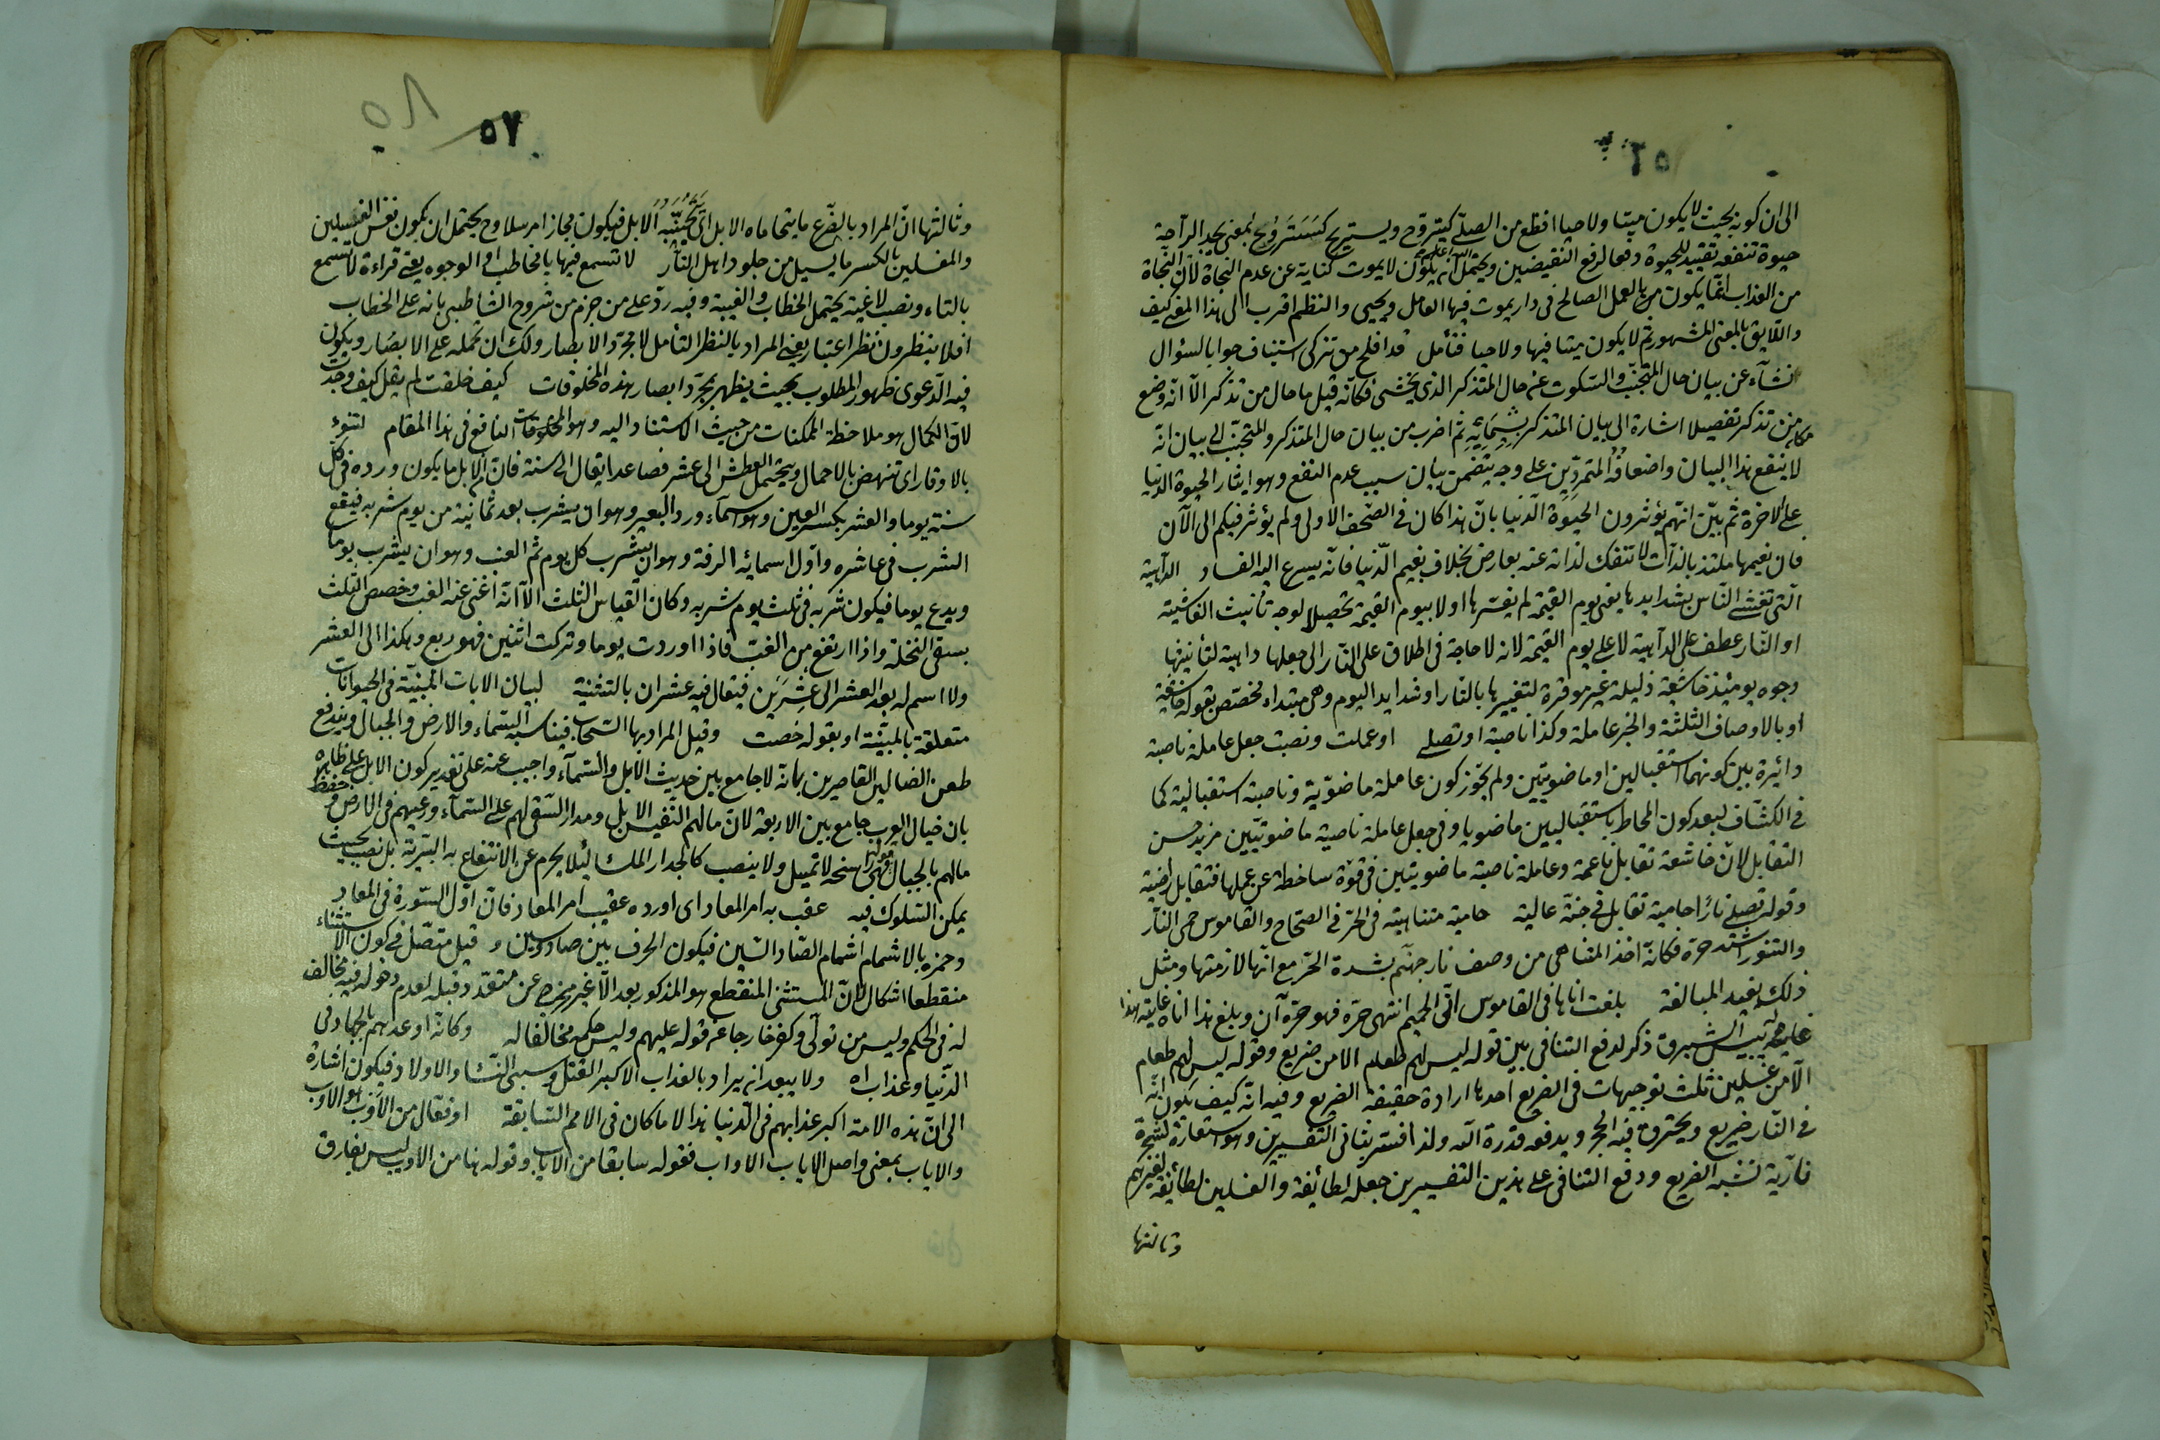 ٥٦
الى ان كونه بحيث لا يكون ميتا ولا حيا افظع من الصلى كيتروح ويستريح كيستروح بمعنى يجد الراحة
حيوة تنفعه تقييد للحيوة دفعا لرفع النقيضين ويحتمل ان يكون لا يموت كناية عن عدم النجاة لان النجاة
من العذاب انما يكون بالعمل الصالح فى دار يموت فيها العامل ويحيى والنظم اقرب الى هذا المعنى كيف
واللايق بالمعنى المشهور ثم لا يكون ميتا فيها ولا حيا فتأمل قد افلح من تزكى استيناف جوابا لسؤال
نشاء عن بيان حال المتجنب والسكوت عن حال المتذكر الذى يخشى فكانه قيل ما حال من تذكر الا انه وضع
مكان من تذكر تفصيلا اشارة الى بيان المتذكر ثم اضرب من بيان حال المتذكر والمتجنب الى بيان انه
لا ينفع هذا البيان واضعافه المتمردين على وجه يتضمن بيان سبب عدم النفع وهو ايثار الحيوة الدنيا
على الاخرة ثم بين انهم يؤثرون الحيوة الدنيا بان هذا كان فى الصحف الاولى ولم يؤثر فيكم الى الآن
فان نعيمها ملتذ بالذات لا تنفك لذاته عنه بعارض بخلاف نعيم الدنيا فانه يسرع اليه الفساد الداهية
التى تغشى الناس بشدايدها يعنى يوم القيمة لم يفسرها اولا بيوم القيمة تحصيلا لوجه تأنيث الغاشية
او النار عطف على الداهية لا على يوم القيمة لانه لا حاجة فى اطلاق على النار الى جعلها داهية لتأنيثها
وجوه يومئذ خاشعة ذليلة غير موقرة لتغييرها بالنار او شدايد اليوم وهى مبتداء مخصص بقوله خاشعة
او بالاوصاف الثلثة والخبر عاملة وكذا ناصبة او تصلى او عملت ونصبت جعل عاملة ناصبة
دائرة بين كونهما استقباليين او ماضويتين ولم يجوز كون عاملة ماضوية وناصبة استقبالية كما
فى الكشاف لبعد كون المحاط باستقباليين ماضويا وفى جعل عاملة ناصبة ماضويتين مزيد حسن
التقابل لان خاشعة تقابل ناعمة وعاملة ناصبة ماضويتين فى قوة ساخطة عن عملها فتقابل راضية
وقوله تصلى نارا حامية تقابل فى جنة عالية حامية متناهية فى الحر فى الصحاح والقاموس حمى النار
والتنور اشتد حره فكانه اخذ المتناهى من وصف نار جهنم بشدة الحر مع انها لازمتها ومثل
ذلك يفيد المبالغة بلغت اناها فى القاموس انى الحميم انتهى حره فهو حره آن وبلغ هذا اناه غايته هذا
يبيس الشبرق ذكر لدفع التنافى بين قوله ليس لهم طعام الا من ضريع وقوله ليس لهم طعام
الا من غسلين ثلث توجيهات فى الضريع احدها ارادة حقيقة الضريع وفيه انه كيف يكون
فى النار ضريع ويحترق فيه الحجر ويدفعه قدرة الله ولذا فسر بثانى التفسيرين وهو استعارة لشجرة
نارية تشبه الضريع ودفع التنافى على هذين التفسيرين جعله لطائفة والغسلين لطائفة لغيرهم
وثالثها
٥٧
٥٨
وثالثها ان المراد بالضريع ما يتحاماه الابل اى يجتنبه الابل فيكون مجازا مرسلا وح يحتمل ان يكون نفس الغسلين
والغسلين بالكسر ما يسيل من جلود اهل النار لا تسمع فيها يا مخاطب او الوجوه يعنى قراءة لا تسمع
بالتاء ونصب لاغية يحتمل الخطاب والغيبة وفيه رد على من جزم من شروح الشاطبى بانه على الخطاب
افلا ينظرون نظر اعتبار يعنى المراد بالنظر التأمل لا مجرد الابصار ولك ان تحمله على الابصار ويكون
فيه الدعوى ظهور المطلوب بحيث يظهر بمجرد ابصار هذه المخلوقات كيف خلقت لم يقل كيف وجدت
لان الكمال هو ملاحظة الممكنات من حيث الاستناد اليه وهو النافع فى هذا المقام لتنوء
بالاوقار اى تنهض بالاحمال ويحتمل العطش الى عشر فصاعدا يقال الى ستة فان الابل ما يكون ورده فى كل
ستة يوما والعشر بكسر العين وهو اسماء ورد البعير وهو ان يشرب بعد ثمانية من يوم شربه فيقع
الشرب فى عاشره واول اسمائه الرفة وهو ان يشرب كل يوم ثم الغب وهو ان يشرب يوما
ويدع يوما فيكون شربه فى ثلث يوم شربه وكان القياس الثلث الا انه اغنى عنه الغب وخصص الثلث
بسقى النخلة واذا ارتفع من الغب فاذا اوردت يوما وتركت اثنين فهو ربع وهكذا الى العشر
ولا اسم له بعد العشر الى عشرين فيقال فيه عشران بالتثنية لبيان الايات المبنية فى الحيوانات
متعلقة بالمبثثة او بقوله خصت وقيل المراد بها السحاب فيناسبه السماء والارض والجبال ويندفع
طعن الضالين القاصرين بانه لا جامع بين حديث الابل والسماء واجيب عنه على تقدير كون الابل على ظاهره
بان خيال العرب جامع بين الاربعة لان مالهم النفيس الابل ومدار السقى لهم على السماء ورعيهم فى الارض وحفظ
مالهم بالجبال فهى راسخة لا تميل ولا ينصب كالجدار الملك لئلا يحرم عن الانتفاع به البرية بل نصب بحيث
يمكن السلوك فيه عقب به امر المعاد اى اورده عقيب امر المعاد فان اول السورة فى المعاد
وحمزه بالاشمام اشمام الصاد السين فيكون الحرف بين صاد وسين و قيل متصل فى كون الاستثناء
منقطعا اشكال لان المستثنى المنقطع هو المذكور بعد الا غير مخرج عن متعدد قبله لعدم دخوله فيه مخالف
له فى الحكم وليس من تولى وكفر خارجا عن قوله عليهم وليس حكمه مخالفا له وكانه اوعدهم بالجهاد فى
الدنيا وعذاب اه ولا يبعد انه يراد بالعذاب الاكبر القتل وسبى النساء والاولاد فيكون اشارة
الى ان هذه الامة اكبر عذابهم فى الدنيا هذا لا ما كان فى الامم السابقة او فعال من الاوب هو الاوب
والاياب بمعنى واصل الاياب الاواب فقوله سابقا من الاياب وقوله هنا من الاوب ليس بفارق